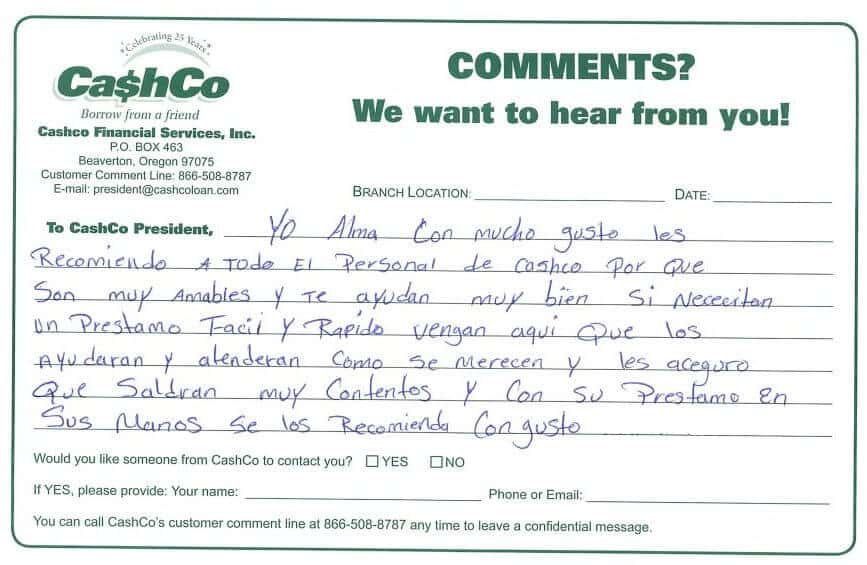 Celebrating 25 Years
Ca$hCo
Borrow from a friend
Cashco Financial Services, Inc.
P.O. BOX 463
Beaverton, Oregon 97075
Customer Comment Line: 866-508-8787
E-mail: president@cashcoloan.com
COMMENTS?
We want to hear from you!
BRANCH LOCATION: DATE:
To CashCo President, Yo Alma Con mucho gusto les
Recomiendo A TODO El Personal de Cashco Por Que
Son muy Amables y Te ayudan muy bien Si Nececitan
un Prestamo Facil Y Rapido vengan aqui Que los
Ayudaran y atenderan Como se Merecen y les aceguro
Que Saldran muy Contentos y Con Su Prestamo En
Sus Manos Se los Recomienda Con gusto
Would you like someone from CashCo to contact you? YES NO
If YES, please provide: Your name: Phone or Email:
You can call CashCo's customer comment line at 866-508-8787 any time to leave a confidential message.